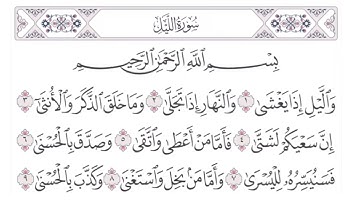 سُورَةُ اللَّيْلِ
بِسْمِ اللَّهِ الرَّحْمَٰنِ الرَّحِيمِ
وَاللَّيْلِ إِذَا يَغْشَىٰ ١ وَالنَّهَارِ إِذَا تَجَلَّىٰ ٢ وَمَا خَلَقَ الذَّكَرَ وَالْأُنثَىٰ ٣
إِنَّ سَعْيَكُمْ لَشَتَّىٰ ٤ فَأَمَّا مَنْ أَعْطَىٰ وَاتَّقَىٰ ٥ وَصَدَّقَ بِالْحُسْنَىٰ ٦
فَسَنُيَسِّرُهُ لِلْيُسْرَىٰ ٧ وَأَمَّا مَن بَخِلَ وَاسْتَغْنَىٰ ٨ وَكَذَّبَ بِالْحُسْنَىٰ ٩